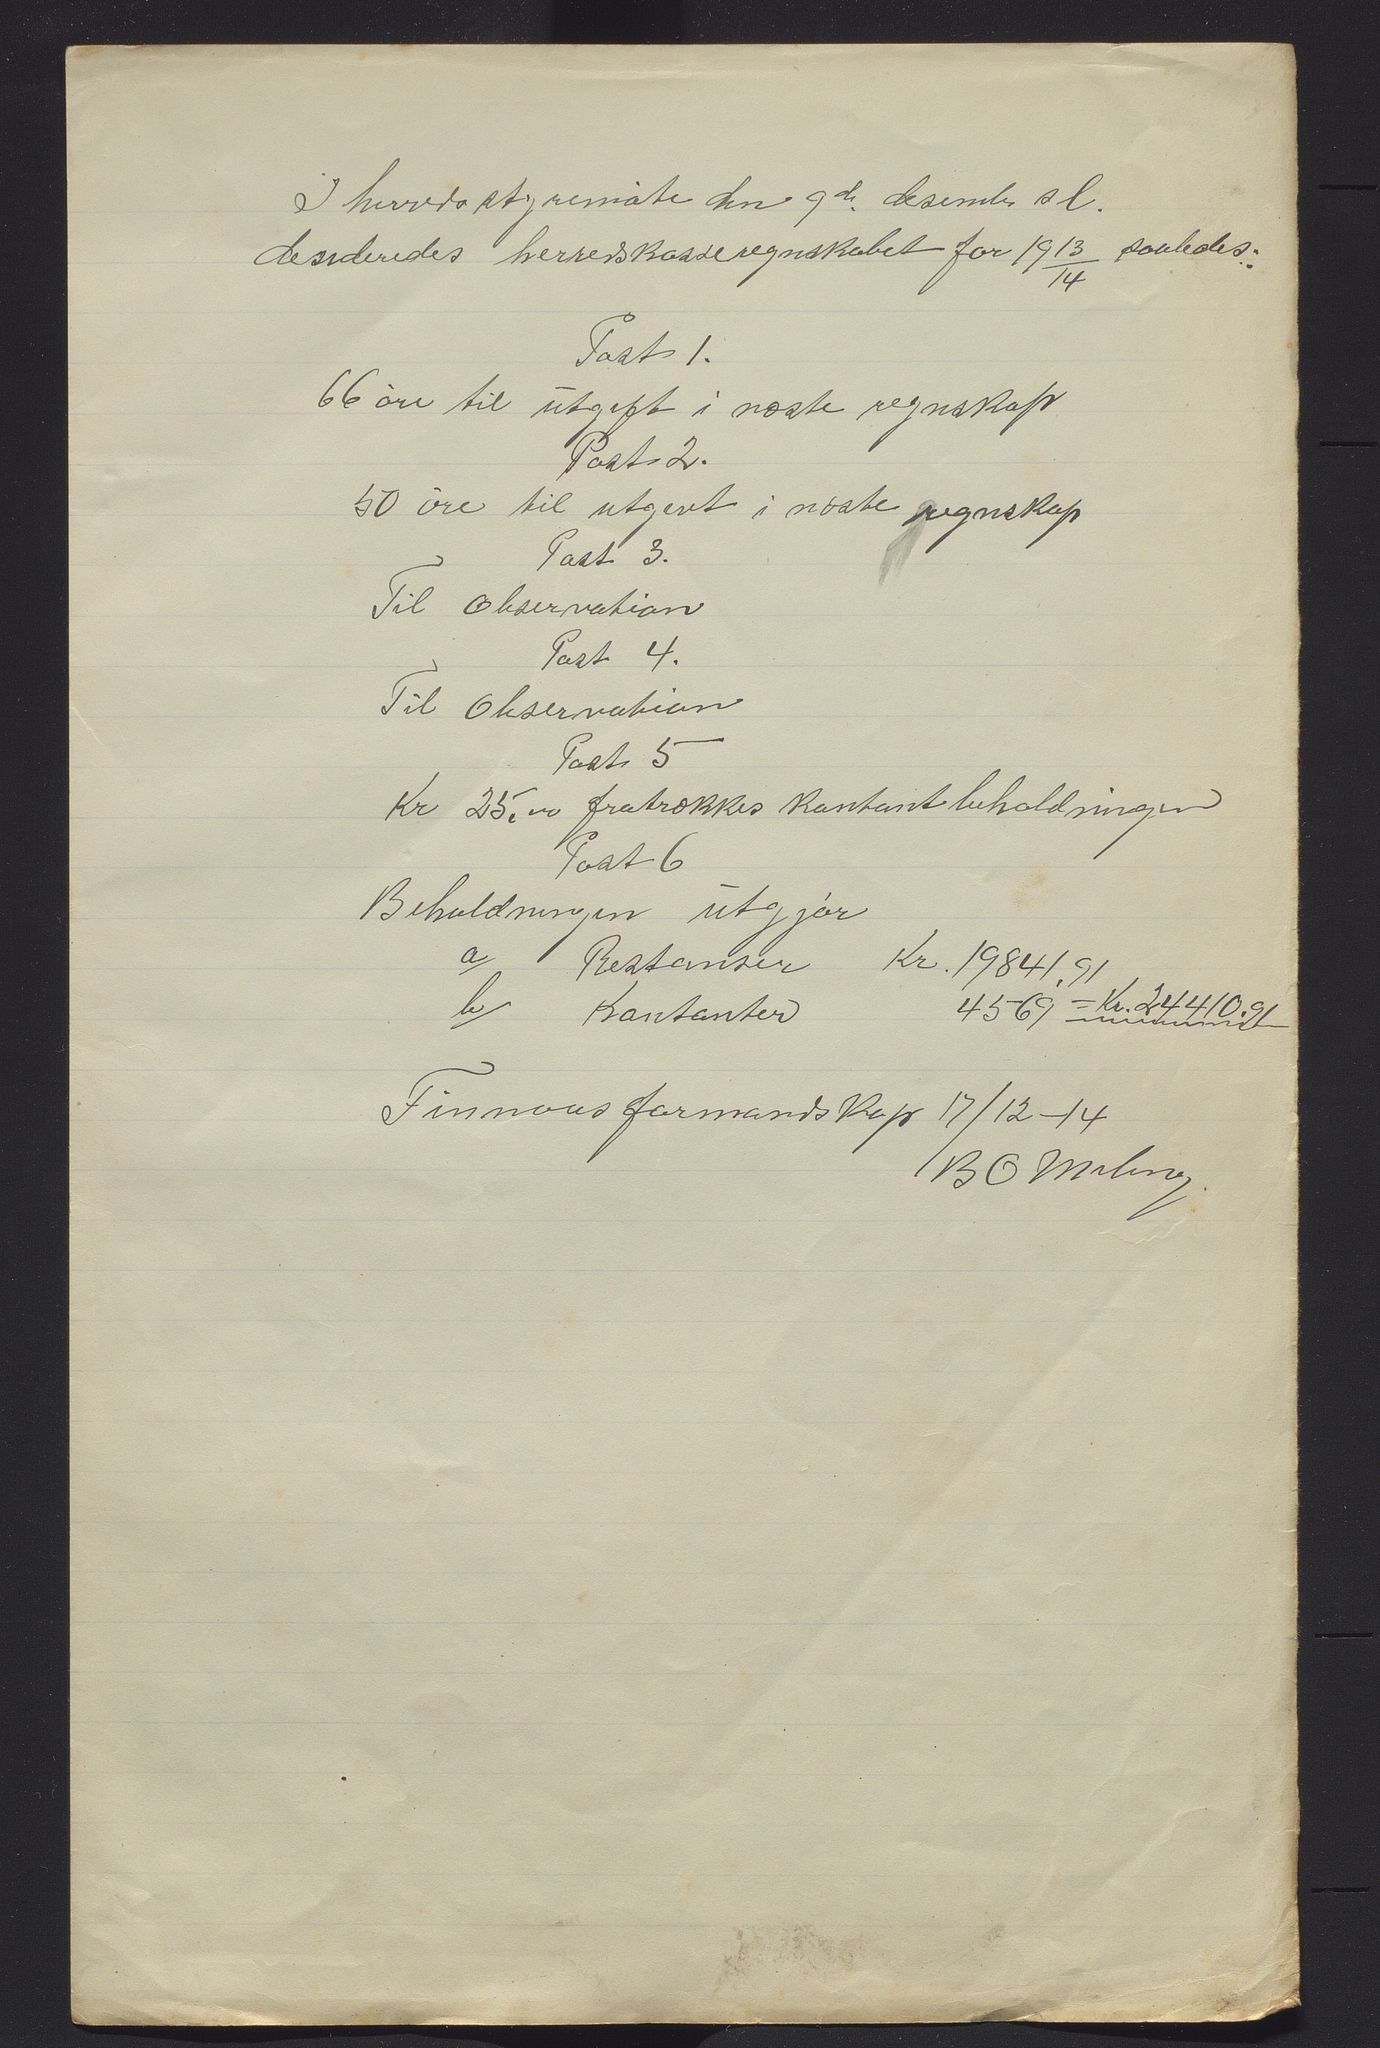 I herredsstyremøte den 9de desembr s l.
desideredes herredskasseregnskabet for 1913/14 saaledes:
Post 1.
66 øre til utgift i næste regnskap
Post 2.
50 øre til utgivt i næste regnskap
Post 3.
Til Observation
Post 4.
Til Observation
Post 5
Kr 25.00 fratrækkes kontantbeholdningen
Post 6
Beholdningen utgjør
a/ Restanser Kr. 19841,91
b/ Kontanter 4569 = Kr. 24410.91
Finnaas formandskap 17/12-14
B O Meling.